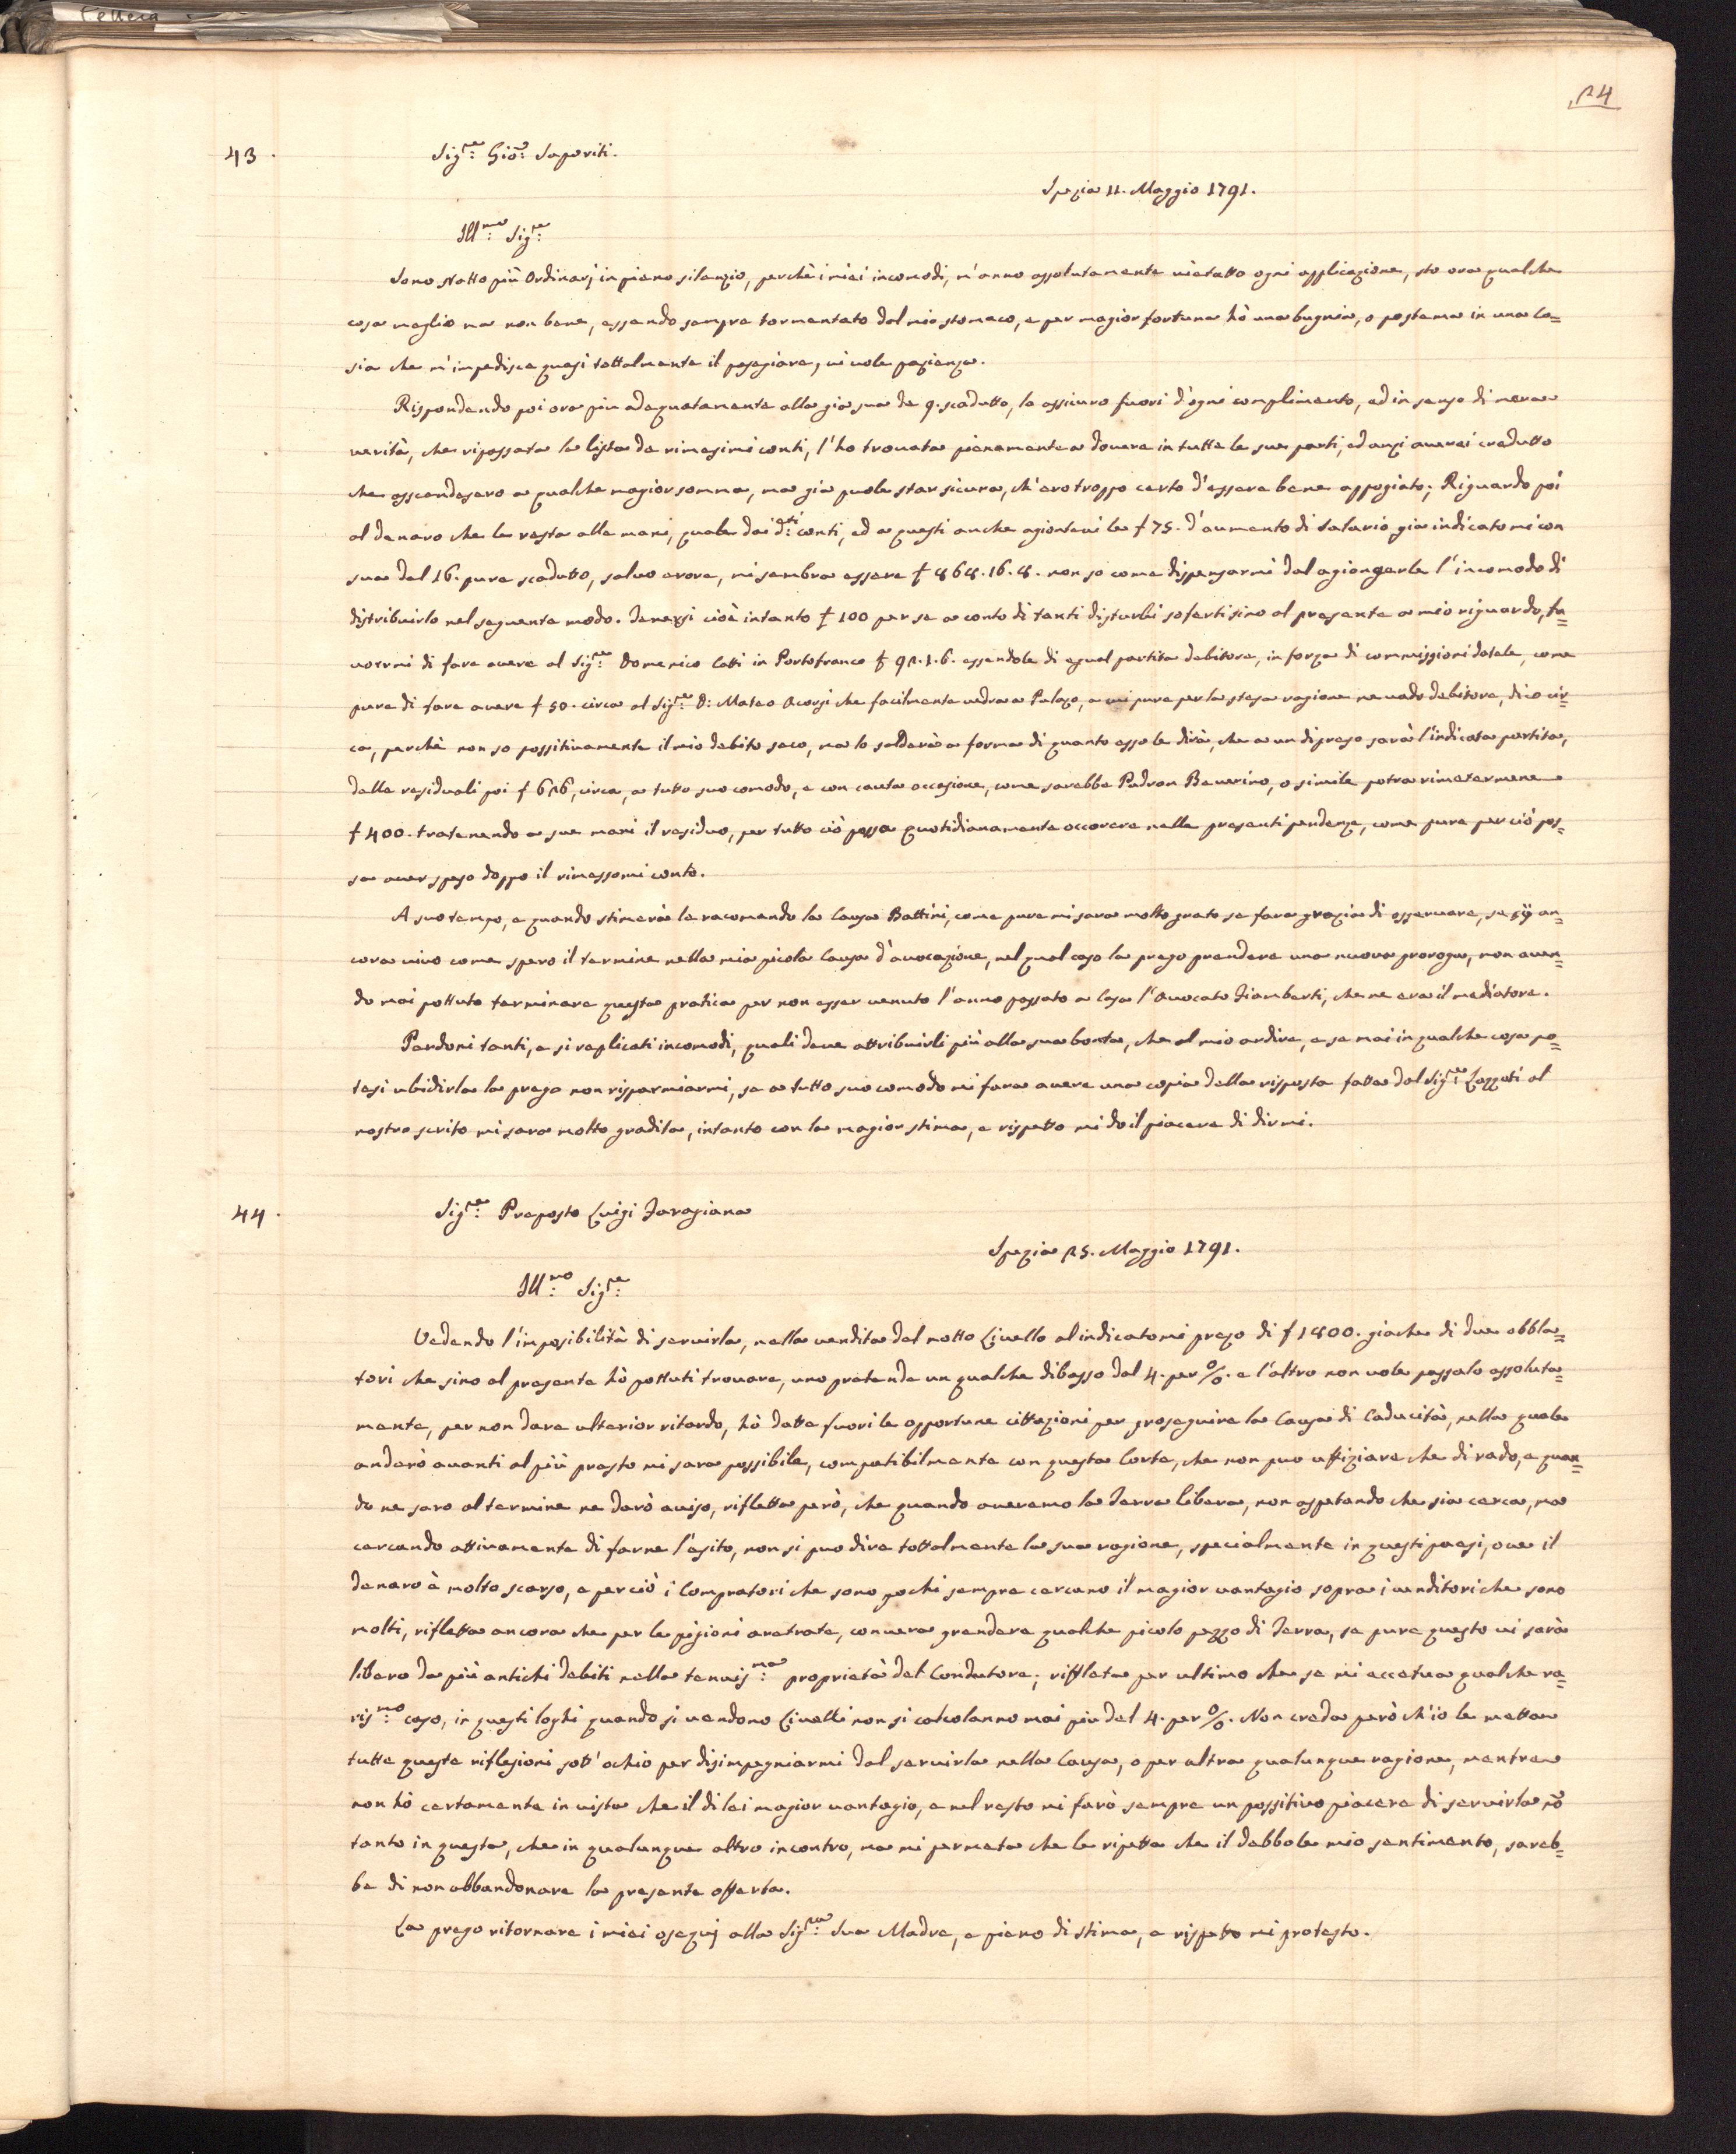 Lettera
24
43. Sig.re Gio: Saporiti.
Spezia 11. Maggio 1791.
Ill.mo Sig.re
Sono statto più Ordinarj in pieno silenzio, perchè i miei incomodi, m'anno assolutamente vietatto ogni applicazione, sto ora qualche
cosa meglio ma non bene, essendo sempre tormentato dal mio stomaco, e per magior fortuna hò una bugnia, o postema in una Co=
sia che m'impedisce quasi tottalmente il pasegiare, vi vole pazienza.
Rispondendo poi ora piu adequatamente alla gia sua de 9. scadutto, la assicuro fuori d'ogni complimento, ed in senso di mera
verità, che ripassata la lista de rimesimi conti, l'ho trovata pienamente a dovere in tutte le sue parti, ed anzi averei credutto
che asscendesero a qualche magior somma, ma gia puole star sicura, ch'ero troppo certo d'essere bene appogiato; Riguardo poi
al denaro che le resta alle mani, quale dai d.ti conti, ed a questi anche agiontevi le £ 75. d'aumento di salario gia indicatomi con
sua del 16. pure scadutto, salvo erore, mi sembra essere £ 868.16.8. non so come dispensarmi dal agiongerle l'incomodo di
distribuirlo nel seguente modo. Tenersi cioè intanto £ 100 per se a conto di tanti disturbi sofertisino al presente a mio riguardo, fa=
vorrmi di fare avere al Sig.re Domenico Catti in Portofranco £ 92.1.6. essendole di egual partita debitore, in forza di commissioni datele, come
pure di fare avere £ 50. circa al Sig.re D: Mateo Acorsi che facilmente vedra a Palazo, a cui pure per la stesa ragione ne vado debitore, dico cir=
ca, perchè non so possitivamente il mio debito seco, ma lo salderà a forma di quanto esso le dirà, che a un dipreso sarà l'indicata partita,
delle residuali poi £ 626, circa, a tutto suo comodo, e con cauta occasione, come sarebbe Padron Baverino, o simile potra rimetermene
£ 400. tratenendo a sue mani il residuo, per tutto ciò possa quotidianamente occorere nelle presenti pendenze, come pure per ciò pos=
sa aver speso doppo il rimessomi conto.
A suo tempo, e quando stimerà le racomando la Causa Battini, come pure mi sara molto grato se fara grazia di osservare, se sÿ an=
cora vivo come spero il termine nella mia picola Causa d'avocazione, nel qual caso la prego prendere una nuova proroga, non aven=
do mai pottuto terminare questa pratica per non esser venuto l'anno passato a Casa l'Avocato Giamberti, che ne era il mediatore.
Perdoni tanti, e si replicati incomodi, quali deve attribuirli più alla sua bonta, che al mio ardire, e se mai in qualche cosa po=
tesi ubidirla la prego non risparmiarmi, se a tutto suo comodo mi fara avere una copia della risposta fatta dal Sig.re Lazzoti al
nostro scrito mi sara molto gradita, intanto con la magior stima, e rispetto mi do il piacere di dirmi.
44. Sig.re Preposto Luigi Faragiana
Spezia 25. Maggio 1791.
Ill.mo Sig.re
Vedendo l'imposibilità di servirla, nella vendita del notto Livello al indicatomi prezo di £ 1800. giache di due obbla=
tori che sino al presente hò pottuti trovare, uno pretende un qualche dibasso dal 4. per %. e l'altro non vole passalo assoluta=
mente, per non dare ulterior ritardo, hò datte fuori le opportune cittazioni per proseguire la Causa di Caducità, nella quale
anderò avanti al più presto mi sara possibile, compatibilmente con questa Corte, che non puo uffiziare che di rado, e quan=
do ne saro al termine ne darò aviso, rifletta però, che quando averemo la Terra libera, non aspetando che sia cerca, ma
cercando attivamente di farne l'esito, non si puo dire tottalmente la sua ragione, specialmente in questi paesi, ove il
denaro è molto scarso, e perciò i Compratori che sono pochi sempre cercano il magior vantagio sopra i venditori che sono
molti, rifletta ancora che per le pigioni aretrate, convera prendere qualche picolo pezzo di Terra, se pure questo vi sarà
libero da più antichi debiti nella tenuis.ma proprietà del Condutore; riffleta per ultimo che se mi eccetua qualche ra=
ris.mo caso, in questi loghi quando si vendono Livelli non si calcolanno mai piu del 4. per %. Non creda però ch'io le metta
tutte queste riflesioni sott'ochio per disimpegniarmi dal servirla nella Causa, o per altra qualunque ragione, mentre
non hò certamente in vista che il di lei magior vantagio, e nel resto mi farò sempre un possitivo piacere di servirla nõ
tanto in questa, che in qualunque altro incontro, ma mi permeta che le ripetta che il debbole mio sentimento, sareb=
be di non abbandonare la presente offerta.
La prego ritornare i miei osequj alla Sig.ra Sua Madre, e pieno di stima, e rispetto mi protesto.